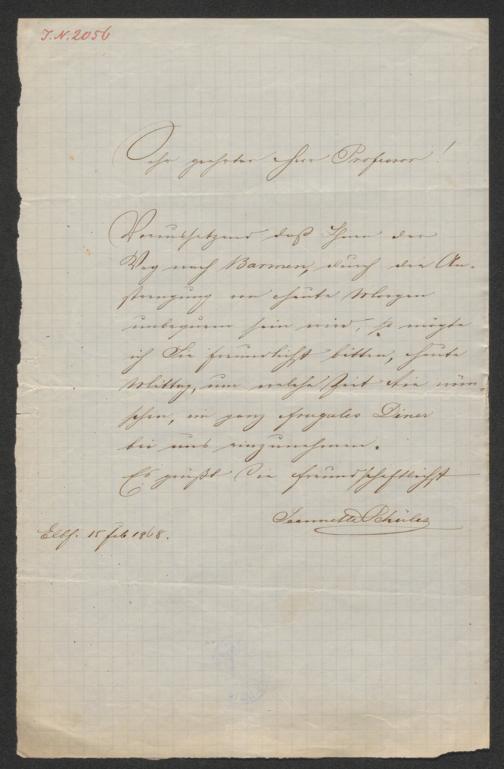 J.N. 2056
Sehr geehrter Herr Professor!
Voraussetzend daß Ihnen der
Weg nach Barmen, durch die An-
strengung von heute Morgen
unbequem sein wird, so mögte
ich Sie freundlichst bitten, heute
Mittag, um welche Zeit Sie wün-
schen, ein ganz frugales Diner
bei uns einzunehmen.
Es grüßt Sie freundschaftlichst
Jeannette Schüler
Elbf. 15 Feb 1868.